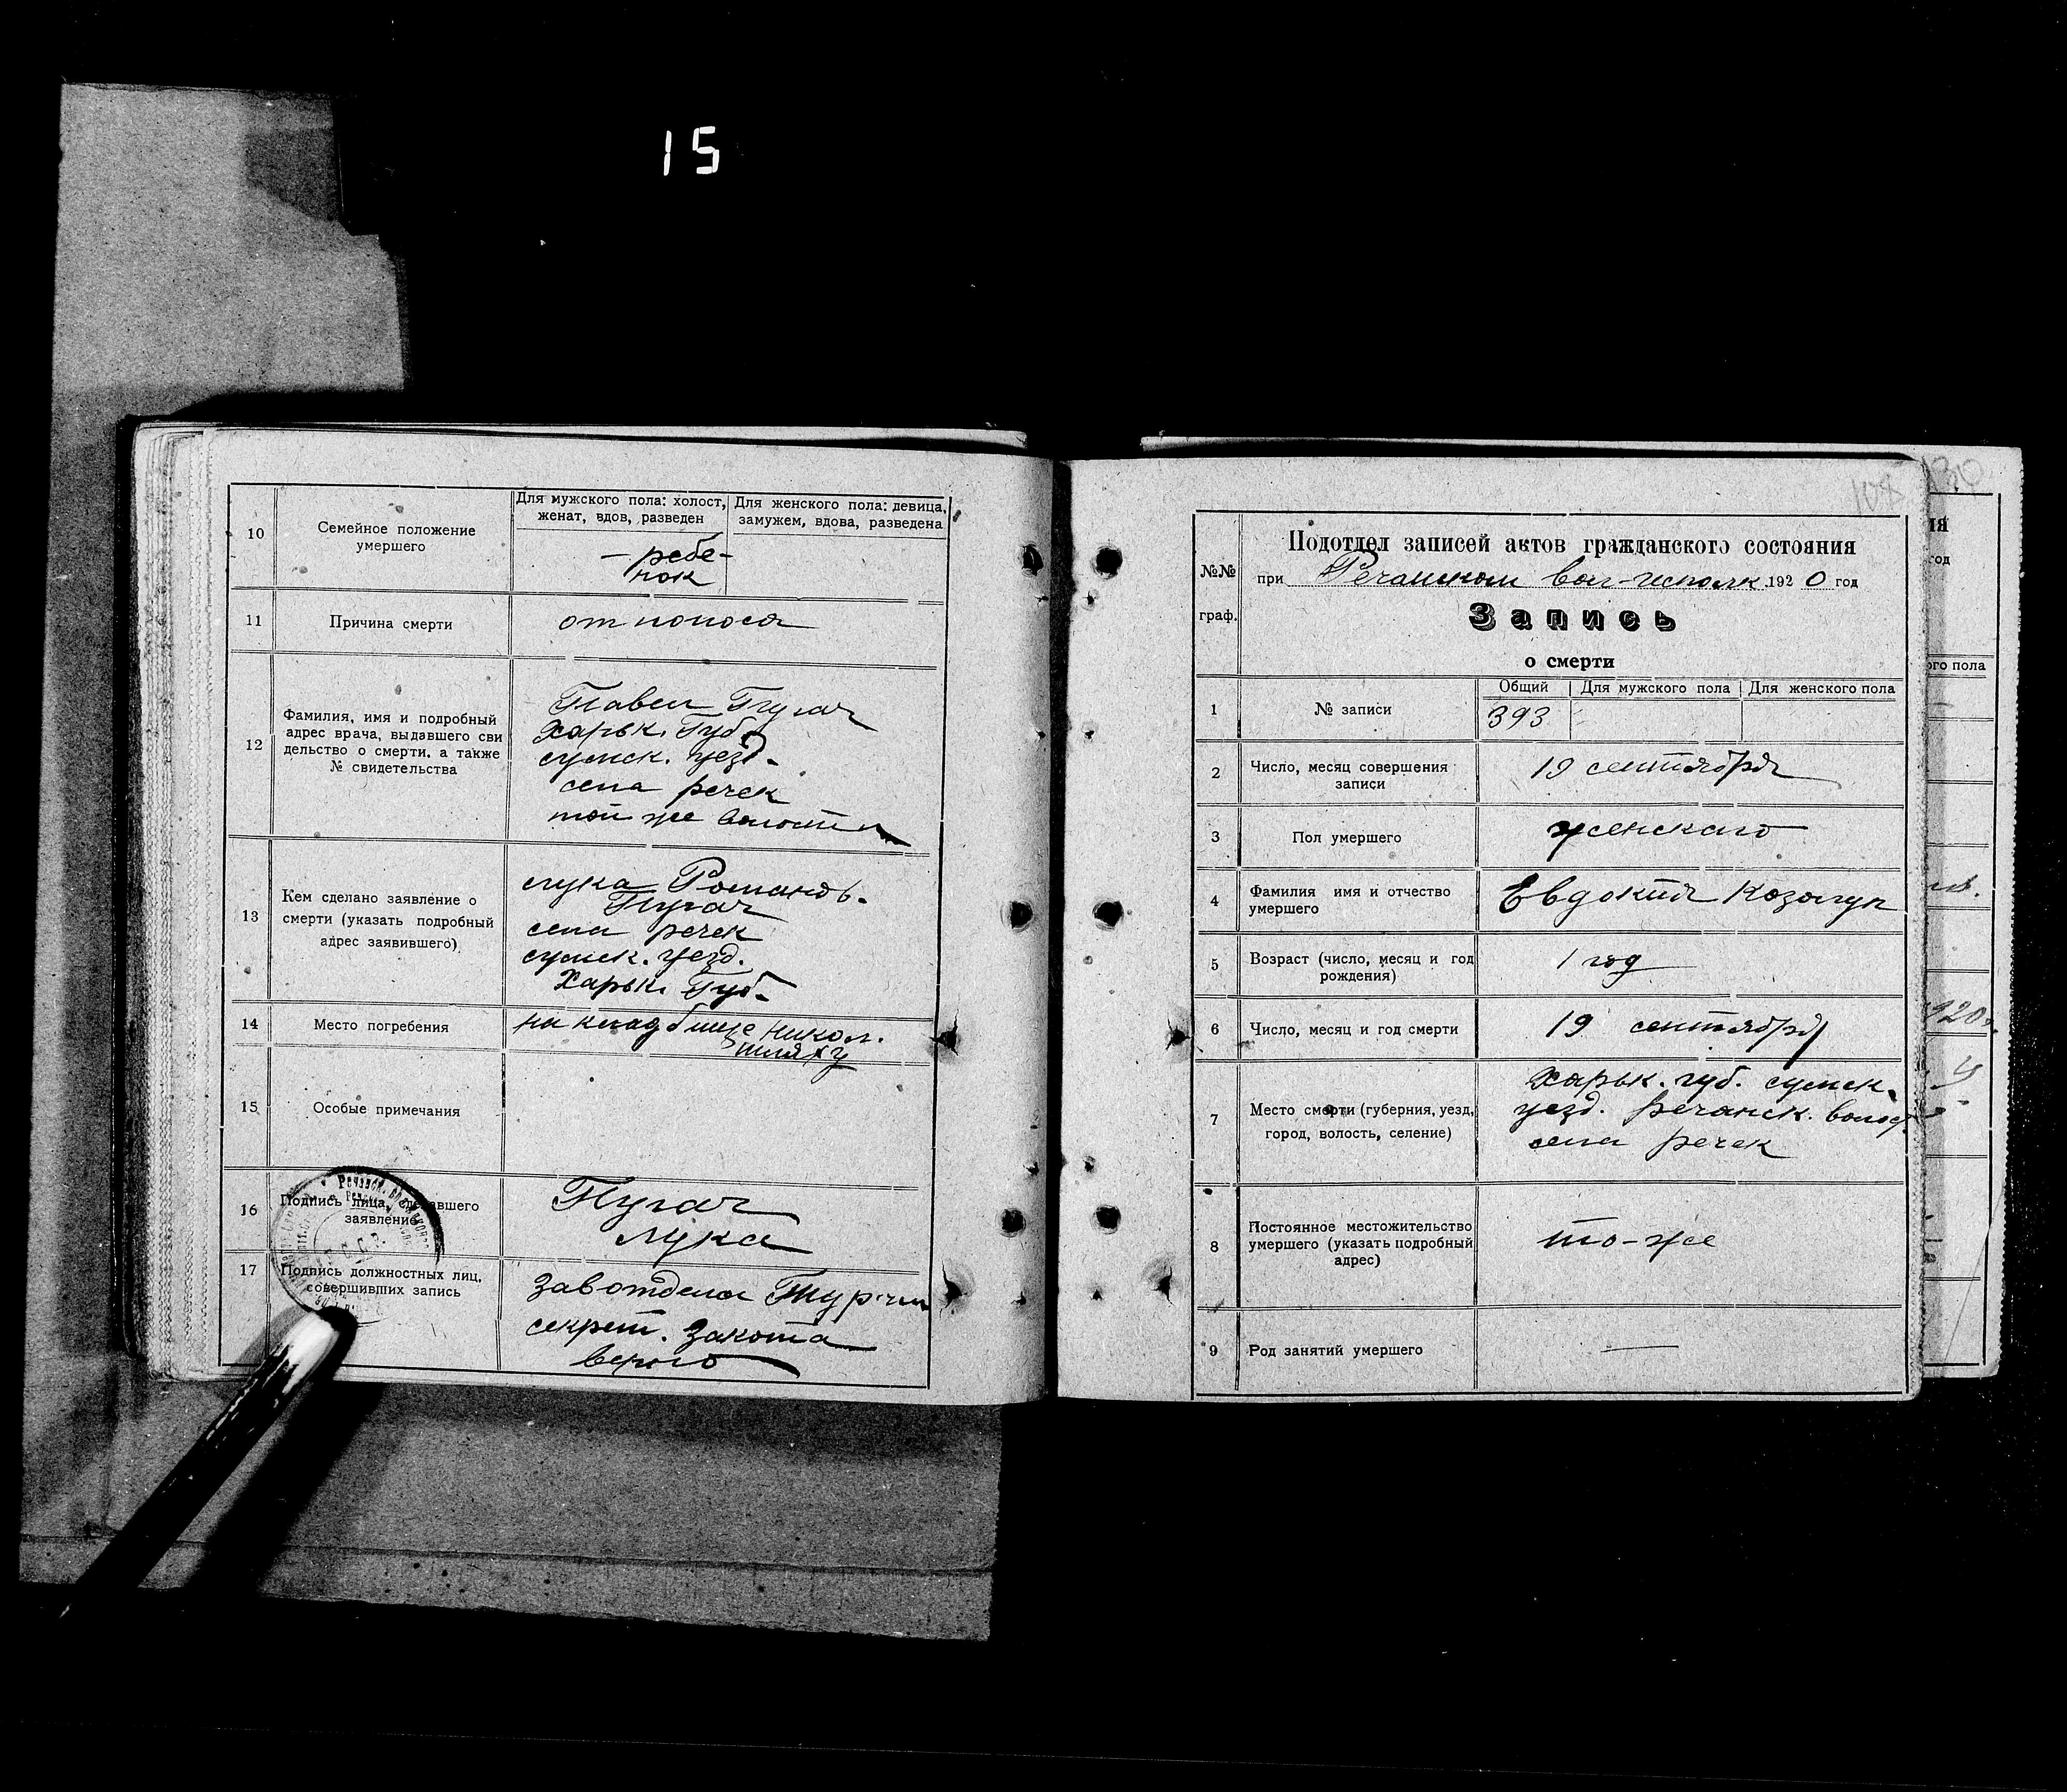 15
10
Семейное положение
умершего
Для мужского пола: холост,
женат, вдов, разведен
Для женского пола: девица,
замужем, вдова, разведена
— ребе-
нок
11
Причина смерти
от поноса
12
Фамилия, имя и подробный
адрес врача, выдавшего сви
дельство о смерти, а также
№ свидетельства
Павел Пугач
Харьк. Губ.
сумск. уезд.
села речек
той же волости
13
Кем сделано заявление о
смерти (указать подробный
адрес заявившего)
лука Романов.
Пугач
села речек
сумск. уезд.
Харьк. Губ.
14
Место погребения
на кладбище никол.
шляху
15
Особые примечания
16
Подпись лица, сделавшего
заявление
Пугач
лука
17
Подпись должностных лиц,
совершивших запись
Завотдела
секрет. Закота
108
130
№№
граф.
Подотдел записей актов гражданского состояния
при Речанском вол-исполк. 1920 год
Запись
о смерти
1
№ записи
Общий
Для мужского пола
Для женского пола
393
2
Число, месяц совершения
записи
19 сентября
3
Пол умершего
женского
4
Фамилия имя и отчество
умершего
Евдокия Козолуп
5
Возраст (число, месяц и год
рождения)
1 год
6
Число, месяц и год смерти
19 сентября
7
Место смерти (губерния, уезд,
город, волость, селение)
Харьк. губ. сумск.
уезд. речанск. волос.
села речек
8
Постоянное местожительство
умершего (указать подробный
адрес)
то-же
9
Род занятий умершего
ия
год
ого пола